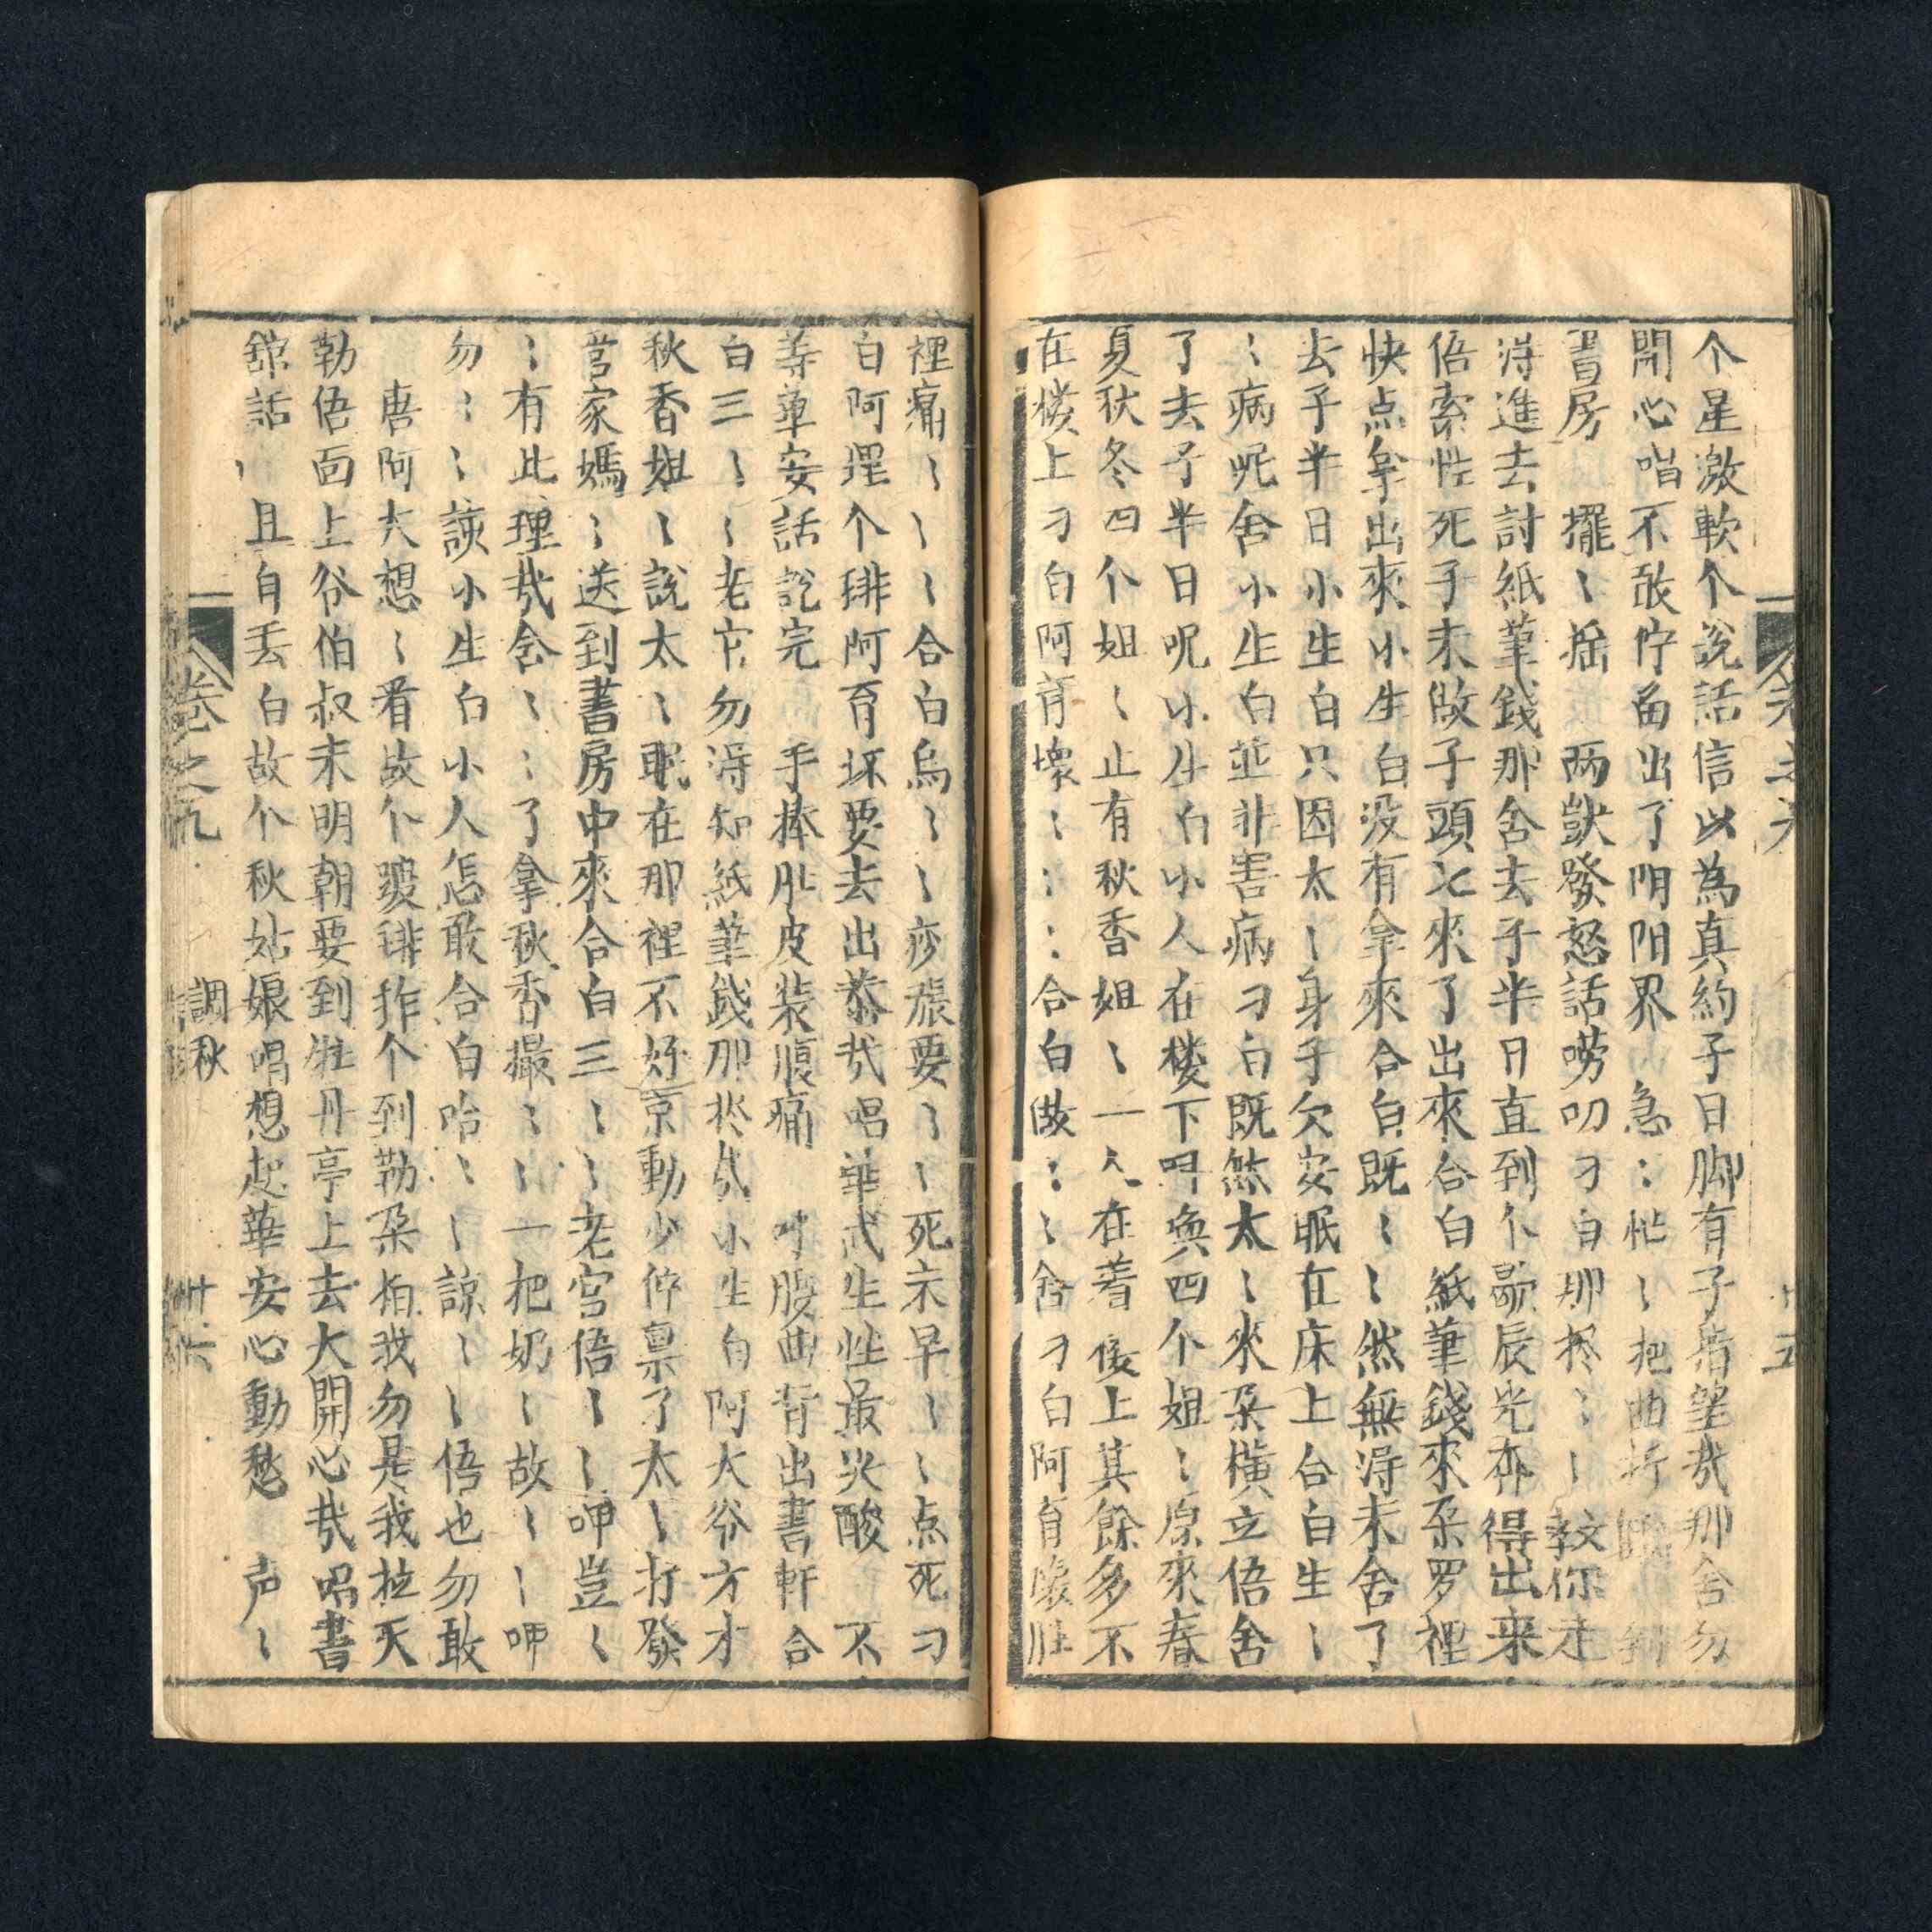 个星激軟个說話信以為真約子日脚有子㫖望㢤那舍勿
開心唱不敢佇畱出了阴阳界 急〻忙〻把曲折
書房 擺〻摇 两獃發怒話嘮叨 刁白那〻〻教你走
淂進去討紙筆錢那舍去子半日直到个歇辰光亦得出来
俉索性死子未做子頭七來了出來合白紙筆錢來朶罗裡
快点拿出來小生白没有拿來合白既〻〻然無淂未舍了
去子半日小生白只因太〻身子欠安眠在床上合白生〻
〻病呢舍小生白並非害病刁白既然太〻來朶横立俉舍
了去子半日呢小生白小人在楼下呌喚四个姐〻原來春
夏秋冬四个姐〻止有秋香姐〻一人在着𢓭上其餘多不
在樓上刁白阿育壞〻〻〻合白做〻〻舍刁白阿育壞肚
裡痛〻〻〻合白烏〻〻痧脹要〻〻死未早〻〻点死刁
白阿理个琲阿育坏要去出恭㢤唱華武生性最尖酸 不
等華安話說完 手捧肚皮裝腹痛 吖腰曲背出書軒合
白三〻〻老官勿淂知紙筆錢那㢤小生白阿大爷方才
秋香姐〻說太〻眠在那裡不好京動少停禀了太〻打發
営家媽〻送到書房中來合白三〻〻老宫俉〻〻呷豈〻
〻有此理㢤舍〻〻〻了拿秋香撮〻〻一把奶〻故〻〻呷
勿〻〻〻諒小生白小人怎敢合白哈〻〻諒〻〻俉也勿敢
唐阿大想〻看故个躼琲拃个到勒朶怕我勿是我拉天
勒俉面上爷伯叔未明朝要到牡丹亭上去大開心㢤唱書
舘話〻且自丢白故个秋姑娘唱想起華安心動愁 声〻
卷之九
調秋
廿六